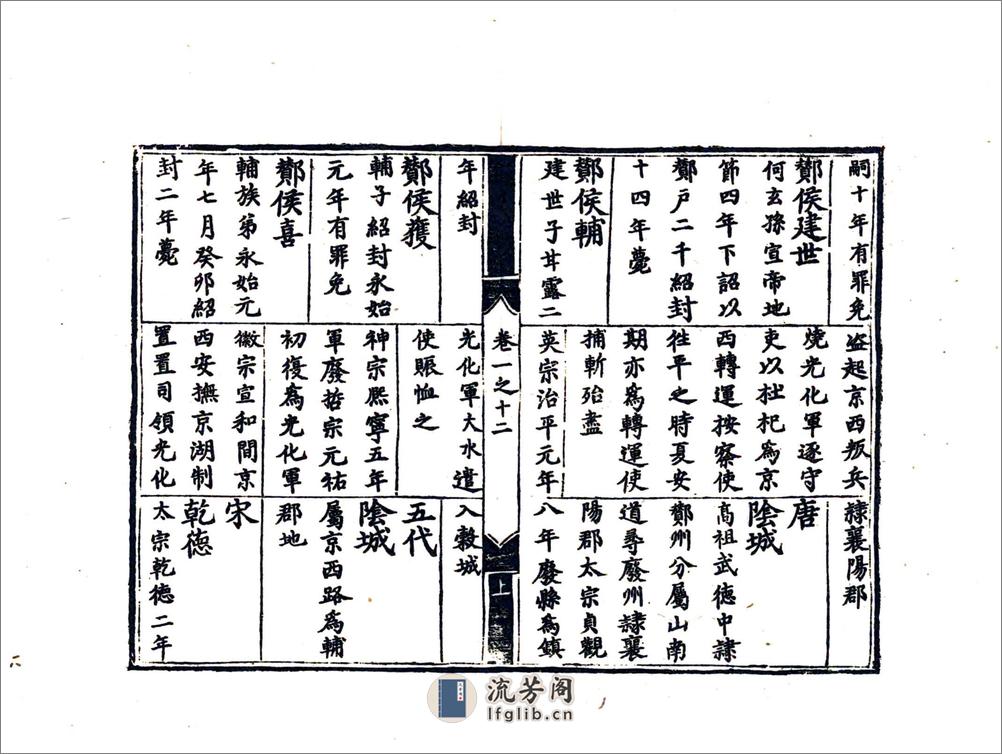 嗣十年有罪免
酇侯建世
何玄孫宣帝地
節四年下詔以
酇户二千紹封
十四年薨
酇侯輔
建世子甘露二
年紹封
酇侯獲
輔子紹封永始
元年有罪免
酇侯喜
輔族弟永始元
年七月癸卯紹
封二年薨
盜起京西叛兵
燒光化軍逐守
吏以杜杞爲京
西轉運按察使
徃平之時夏安
期亦爲轉運使
捕斬殆盡
英宗治平元年
光化軍大水遣
使賑恤之
神宗熈寧五年
軍廢哲宗元祐
初復爲光化軍
徽宗宣和間京
西安撫京湖制
置置司領光化
隸襄陽郡
唐
陰城
高祖武德中隸
酇州分屬山南
道尋廢州隸襄
陽郡太宗貞觀
八年廢縣爲鎮
入穀城
五代
陰城
屬京西路爲輔
郡地
宋
乾德
太宗乾德二年
卷一之十二
上
流芳阁
lfglib.cn